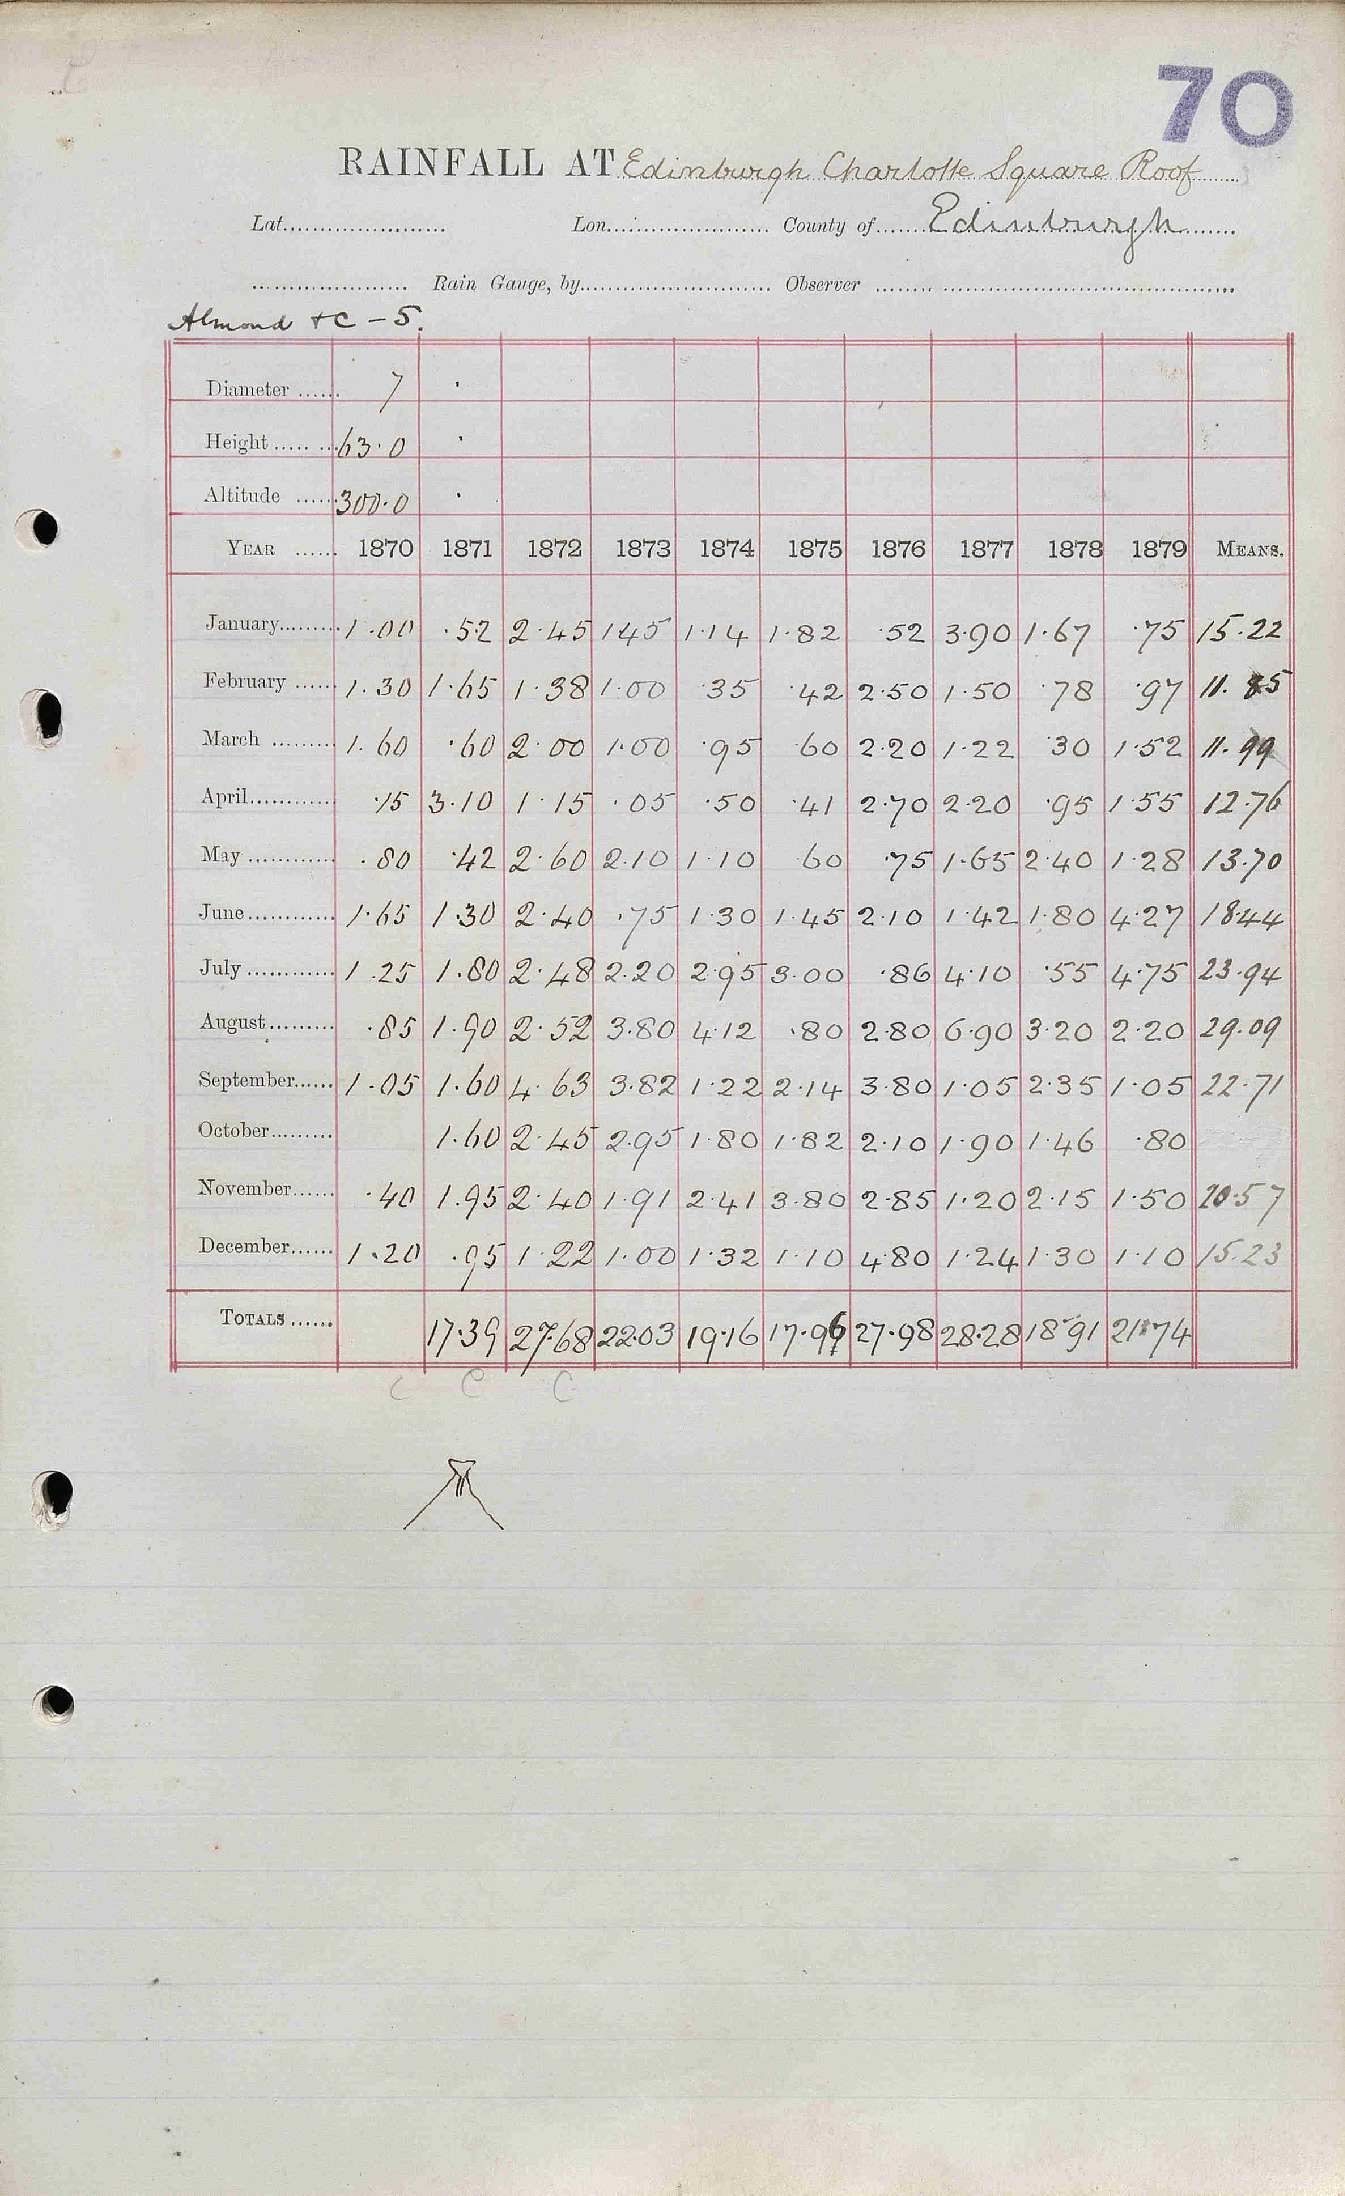 70
RAINFALL AT Edinburgh Charlotte Square Roof
Lat. Lon. County of Edinburgh
Rain Gauge, by Observer
Almond & C – 5.
Diameter 7
Height 63.0
Altitude 300.0
YEAR 1870 1871 1872 1873 1874 1875 1876 1877 1878 1879 MEANS.
January 1.00 .52 2.45 1.45 1.14 1.82 .52 3.90 1.67 .75 15.22
February 1.30 1.65 1.38 1.00 .35 .42 2.50 1.50 .78 .97 11.85
March 1.60 .60 2.00 1.00 .95 .60 2.20 1.22 .30 1.52 11.99
April .15 3.10 1.15 .05 .50 .41 2.70 2.20 .95 1.55 12.76
May .80 .42 2.60 2.10 1.10 .60 .75 1.65 2.40 1.28 13.70
June 1.65 1.30 2.40 .75 1.30 1.45 2.10 1.42 1.80 4.27 18.44
July 1.25 1.80 2.48 2.20 2.95 3.00 .86 4.10 .55 4.75 23.94
August .85 1.90 2.52 3.80 4.12 .80 2.80 6.90 3.20 2.20 29.09
September 1.05 1.60 4.63 3.82 1.22 2.14 3.80 1.05 2.35 1.05 22.71
October 1.60 2.45 2.95 1.80 1.82 2.10 1.90 1.46 .80
November .40 1.95 2.40 1.91 2.41 3.80 2.85 1.20 2.15 1.50 20.57
December 1.20 .95 1.22 1.00 1.32 1.10 4.80 1.24 1.30 1.10 15.23
TOTALS 17.39 27.68 22.03 19.16 17.96 27.98 28.28 18.91 21.74
C C C